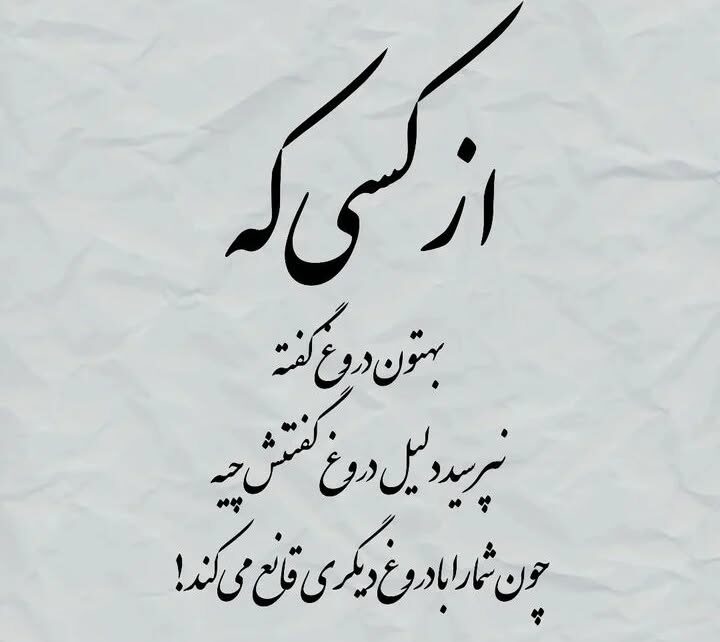 از کسی که
بهتون دروغ گفته
نپرسید دلیل دروغ گفتنش چیه
چون شما را با دروغ دیگری قانع می‌کند!